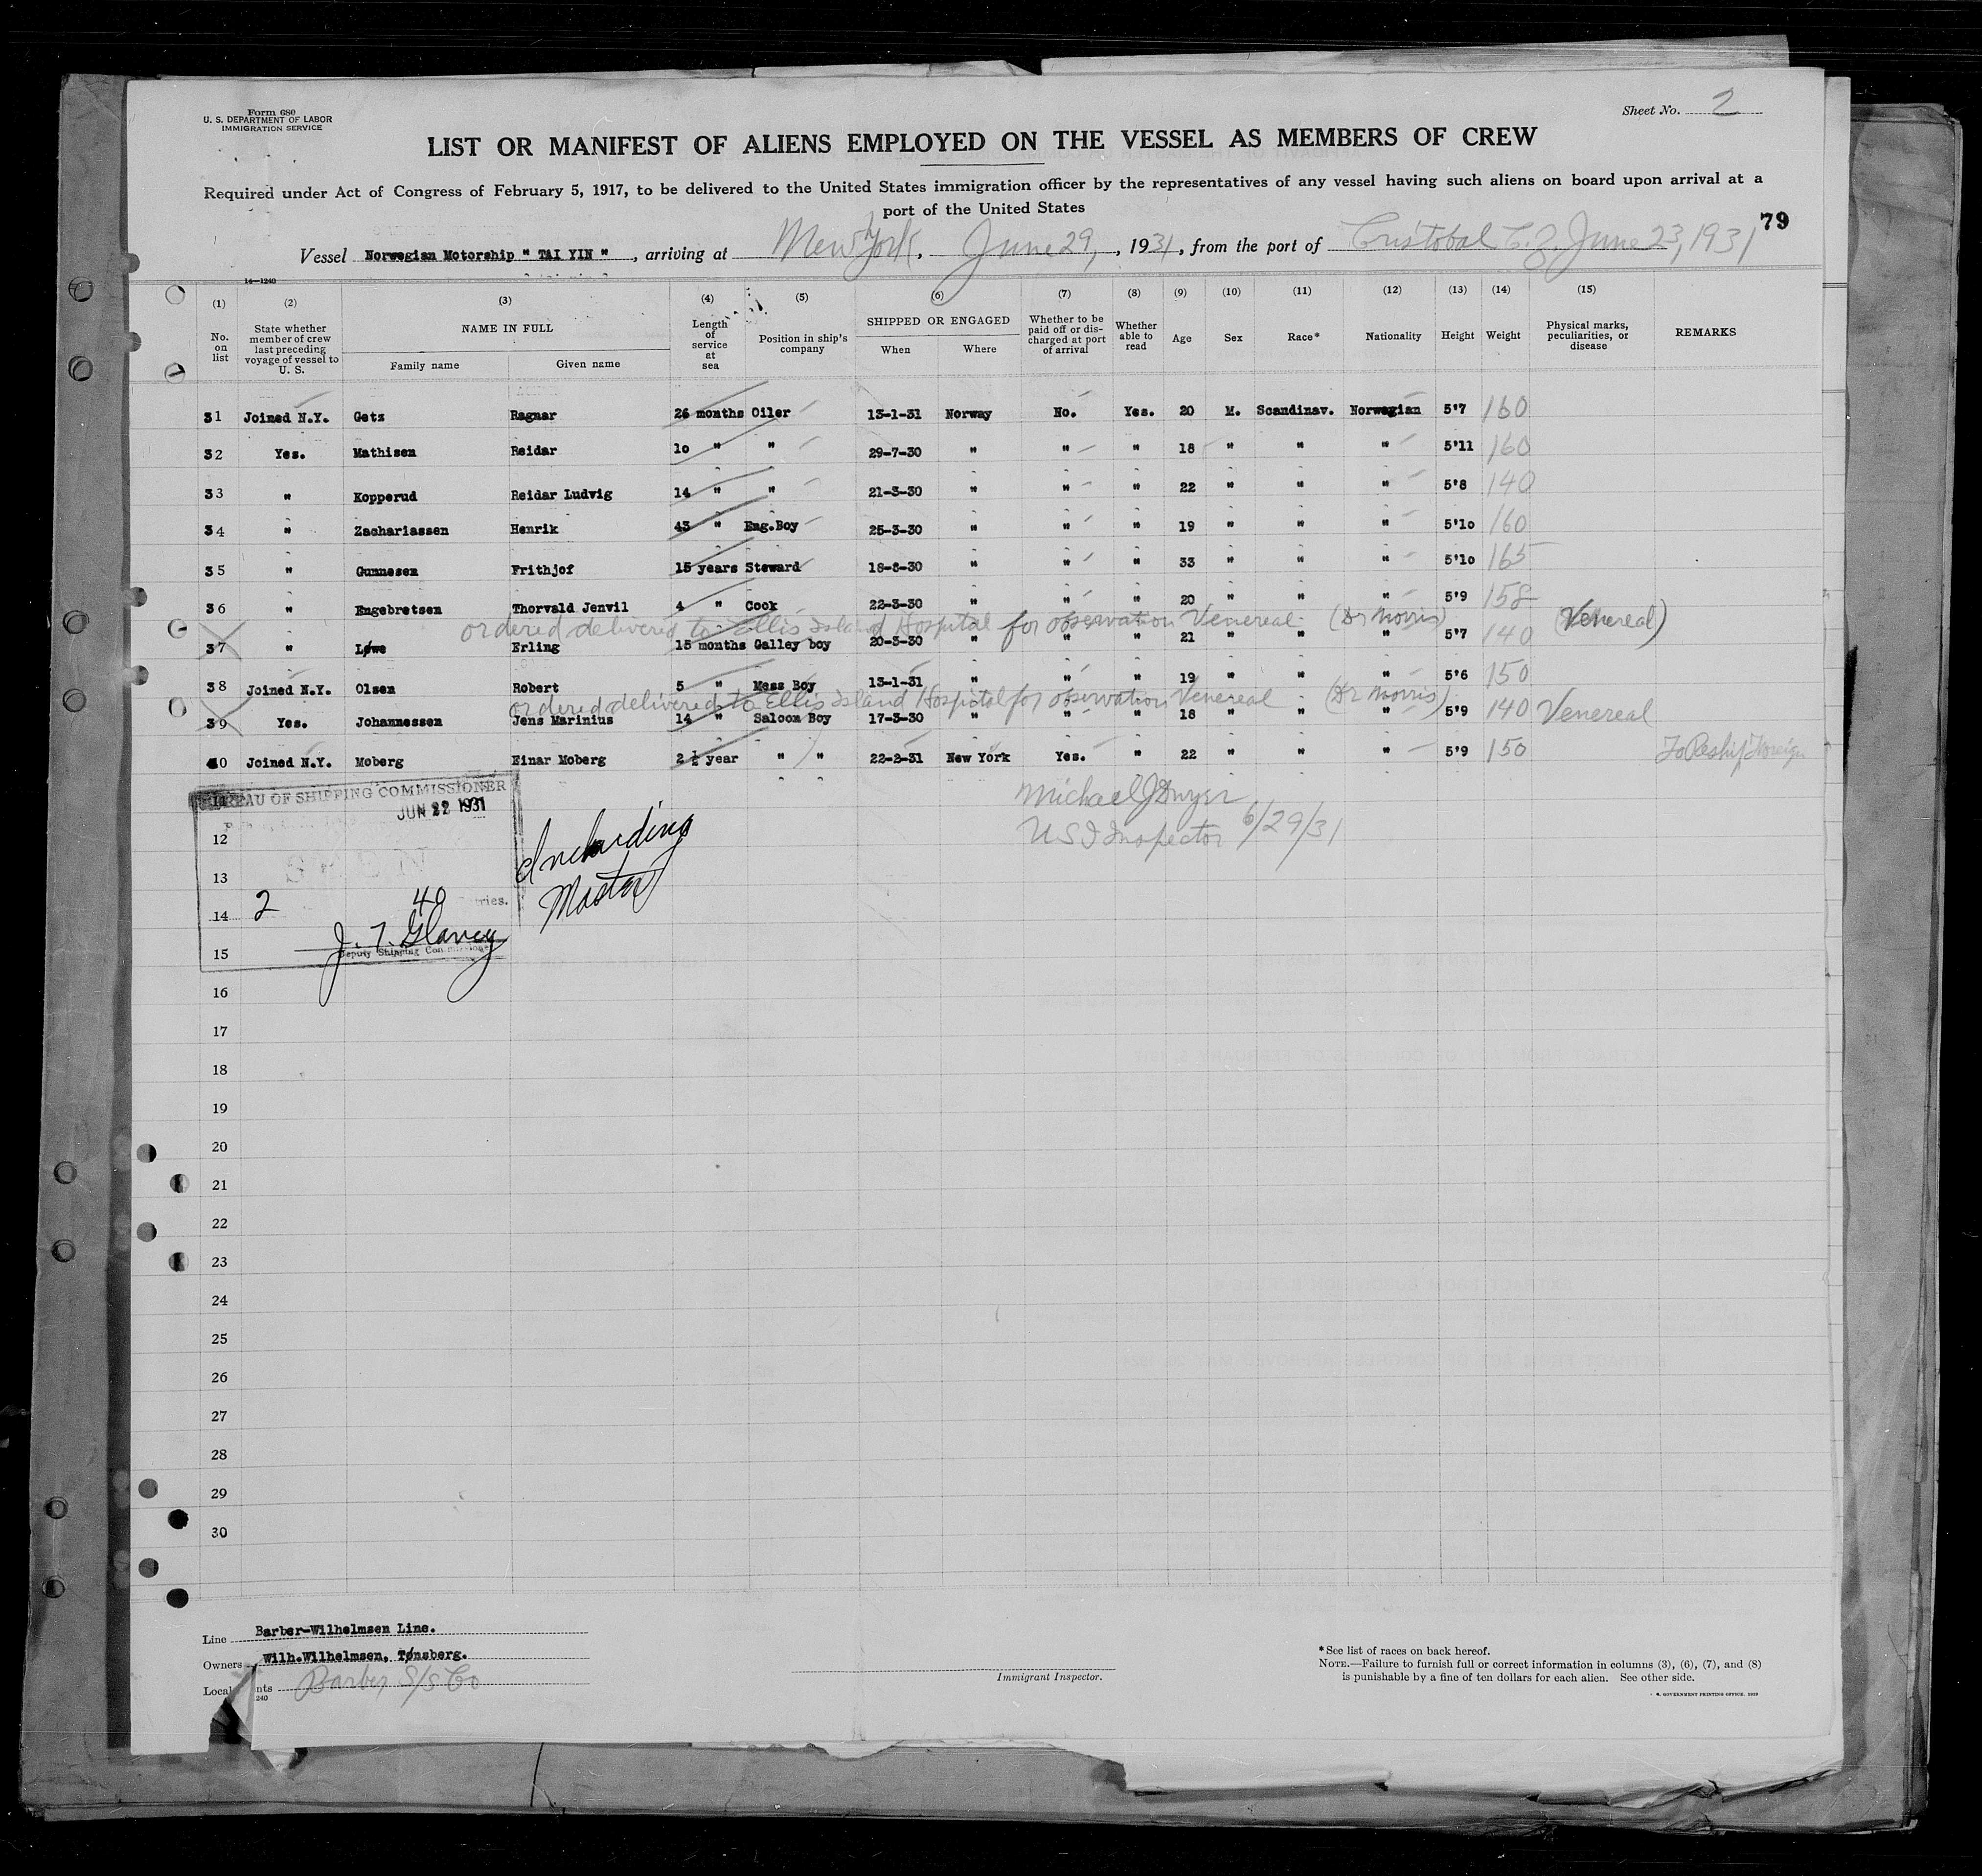 Form 680
U. S. DEPARTMENT OF LABOR
IMMIGRATION SERVICE
Sheet No. 2
LIST OR MANIFEST OF ALIENS EMPLOYED ON THE VESSEL AS MEMBERS OF CREW
Required under Act of Congress of February 5, 1917, to be delivered to the United States immigration officer by the representatives of any vessel having such aliens on board upon arrival at a
port of the United States
79
Vessel Norwegian Motorship " TAI YIN ", arriving at New York, June 29, 1931, from the port of Cristobal C.Z. June 23, 1931
14—1240
(1) (2) (3) (4) (5) (6) (7) (8) (9) (10) (11) (12) (13) (14) (15)
No. on list State whether member of crew last preceding voyage of vessel to U. S. NAME IN FULL Family name Given name Length of service at sea Position in ship's company SHIPPED OR ENGAGED When Where Whether to be paid off or discharged at port of arrival Whether able to read Age Sex Race* Nationality Height Weight Physical marks, peculiarities, or disease REMARKS
31 Joined N.Y. Getz Ragnar 26 months Oiler 13-1-31 Norway No. Yes. 20 M. Scandinav. Norwegian 5'7 160
32 Yes. Mathisen Reidar 10 " " 29-7-30 " " " 18 " " " 5'11 160
33 " Kopperud Reidar Ludvig 14 " " 21-3-30 " " " 22 " " " 5'8 140
34 " Zachariassen Henrik 43 " Eng.Boy 25-3-30 " " " 19 " " " 5'10 160
35 " Gunnesen Frithjof 15 years Steward 18-8-30 " " " 33 " " " 5'10 165
36 " Engebretsen Thorvald Jenvil 4 " Cook 22-3-30 " " " 20 " " " 5'9 158
ordered delivered to Ellis Island Hospital for observation Venereal (Dr Morris) (Venereal)
37 " Løwe Erling 15 months Galley boy 20-3-30 " " " 21 " " " 5'7 140
38 Joined N.Y. Olsen Robert 5 " Mess Boy 13-1-31 " " " 19 " " " 5'6 150
ordered delivered to Ellis Island Hospital for observation Venereal (Dr Morris)
39 Yes. Johannessen Jens Marinius 14 " Saloon Boy 17-3-30 " " " 18 " " " 5'9 140 Venereal
40 Joined N.Y. Moberg Einar Moberg 2 ½ year " " 22-2-31 New York Yes. " 22 " " " 5'9 150 To Reship Foreign
BUREAU OF SHIPPING COMMISSIONER
JUN 22 1931
Michael J Dwyer
USI Inspector 6/29/31
Including
Master
2 40 ries.
J. T. Glavey
Deputy Shipping Commissioner
11
12
13
14
15
16
17
18
19
20
21
22
23
24
25
26
27
28
29
30
Line Barber-Wilhelmsen Line.
Owners Wilh.Wilhelmsen, Tønsberg.
Local nts Barber S/S Co
240
Immigrant Inspector.
*See list of races on back hereof.
NOTE.—Failure to furnish full or correct information in columns (3), (6), (7), and (8)
is punishable by a fine of ten dollars for each alien. See other side.
GOVERNMENT PRINTING OFFICE. 1929